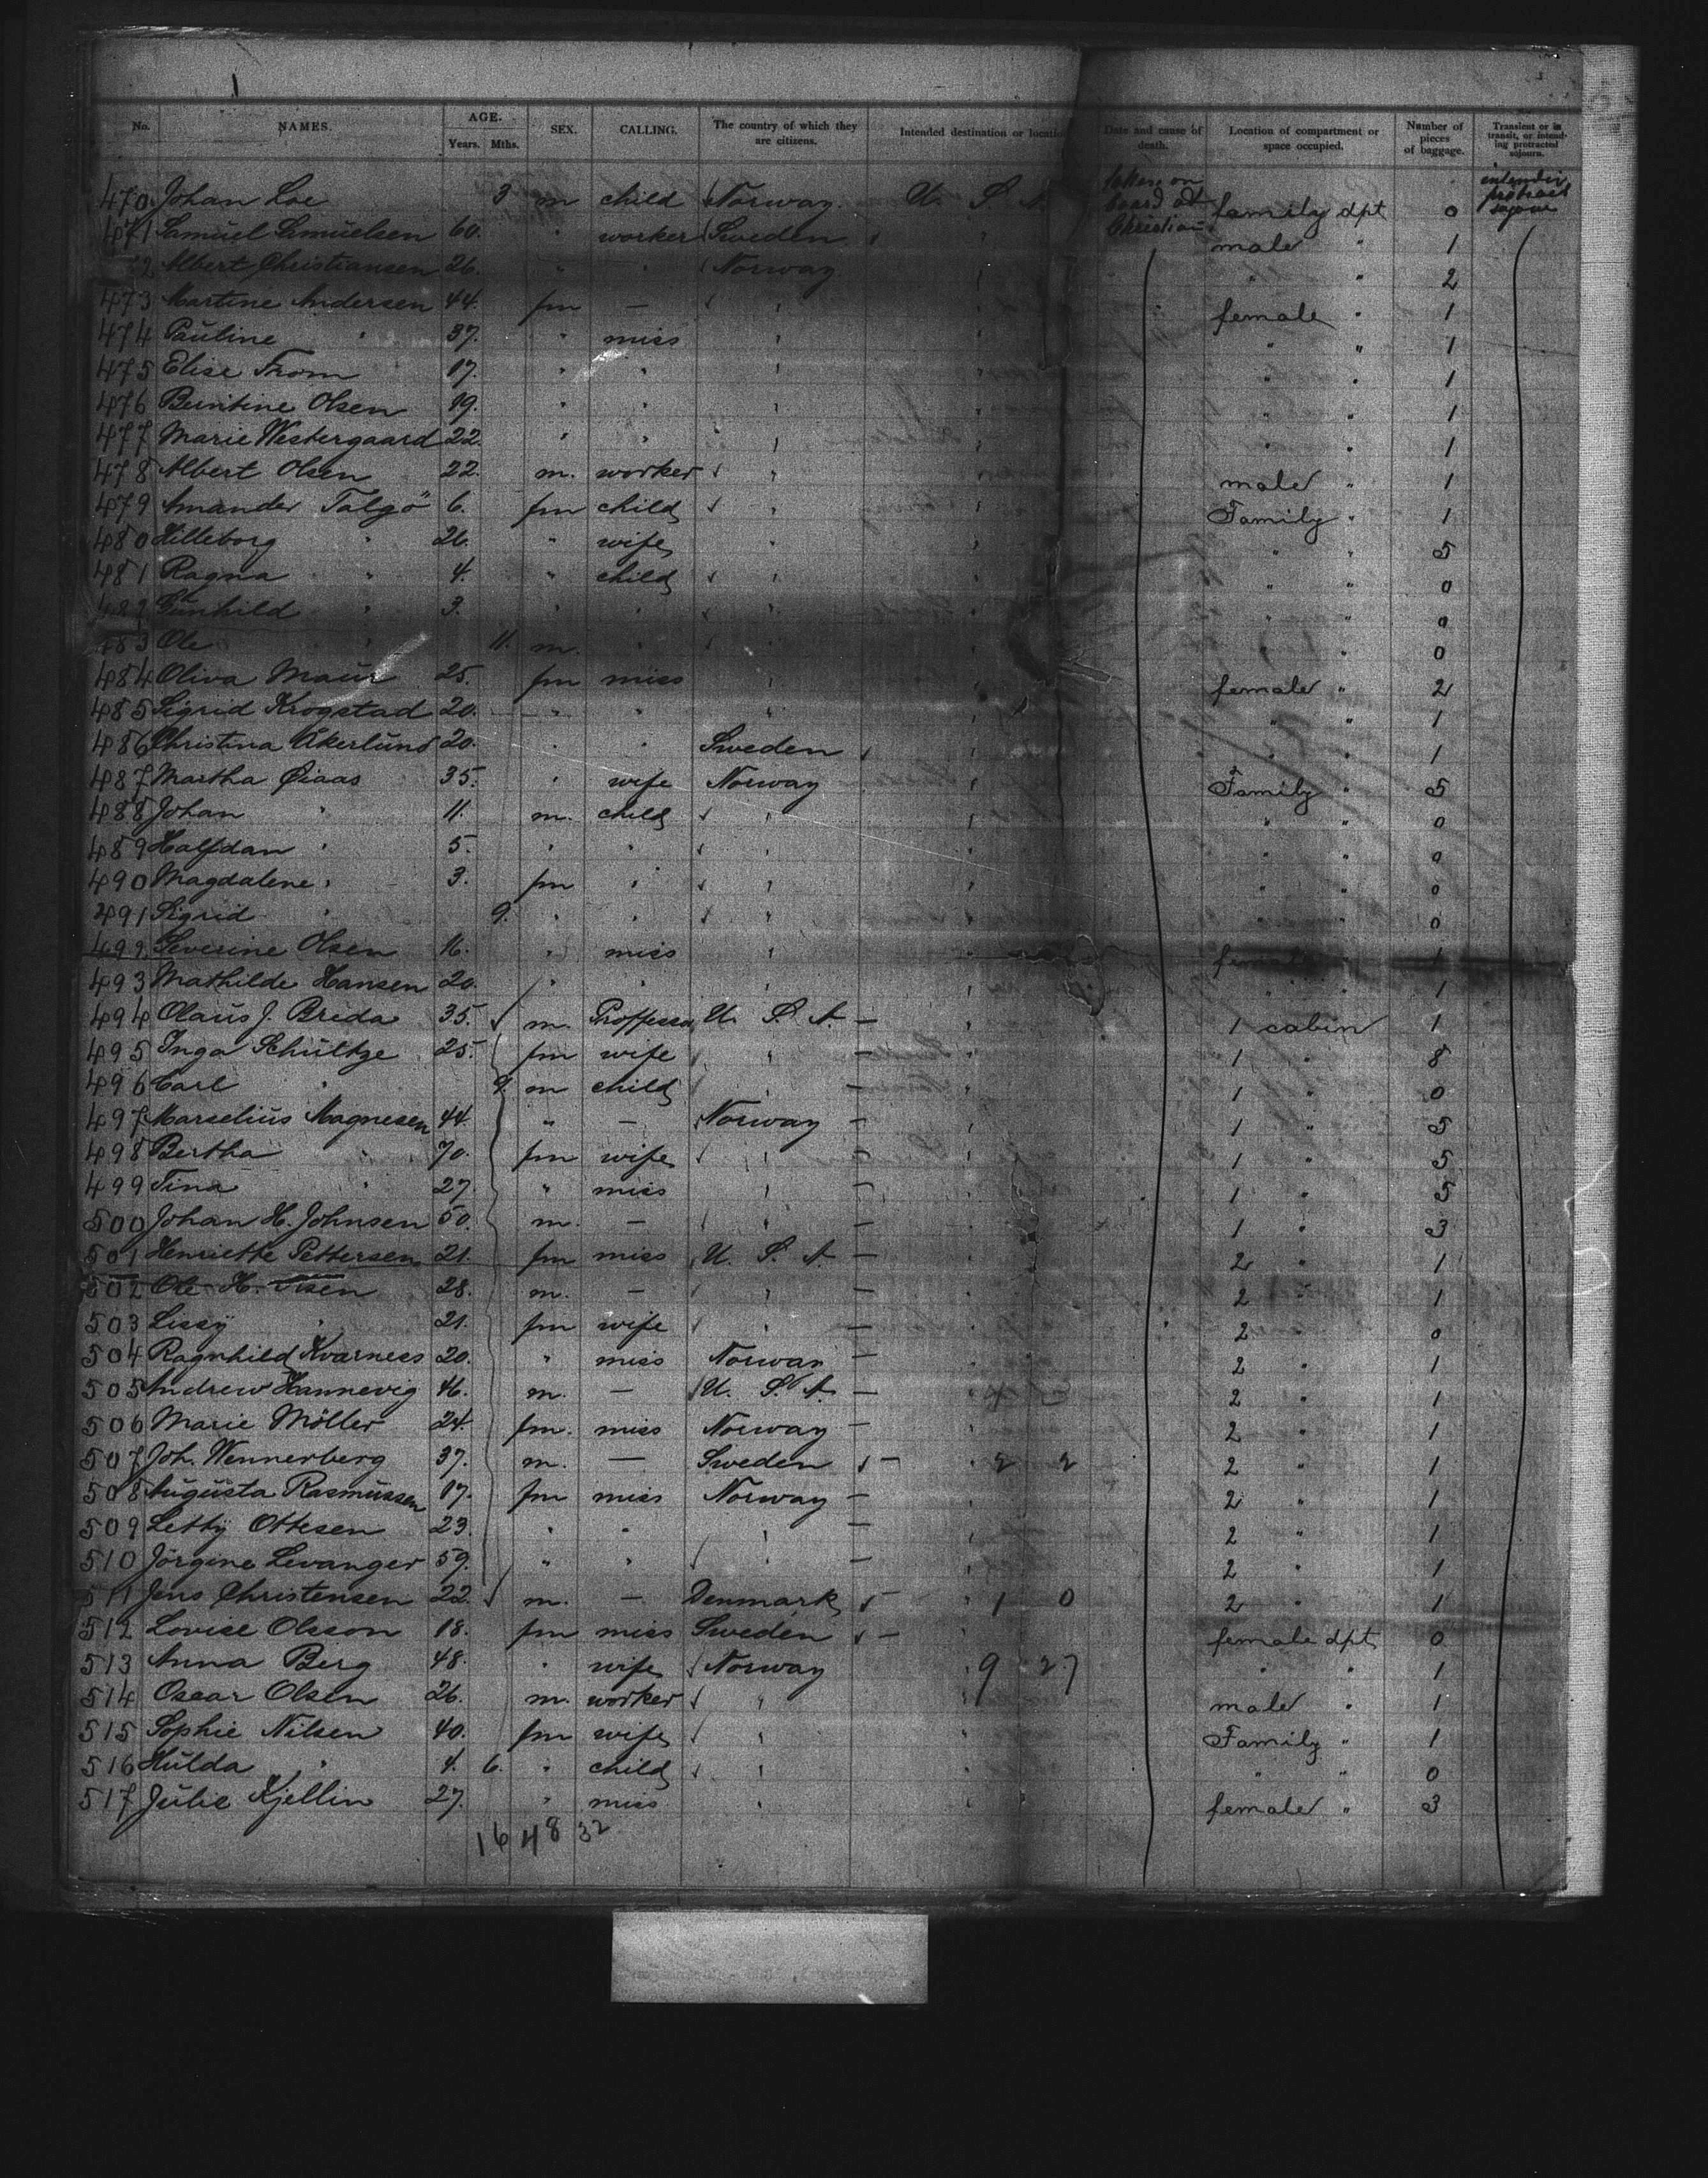 No. NAMES. AGE. Years. Mths. SEX. CALLING. The country of which they are citizens. Intended destination or location Date and cause of death. Location of compartment or space occupied. Number of pieces of baggage. Transient or in transit, or intending protracted sojourn.
470 Johan Loe 3 m child Norway U. S. A. taken on board at Christian family dpt 0 intended protract sojour
471 Samuel Samuelsen 60. " worker Sweden " male " 1
72 Albert Christiansen 26. " " Norway " " " 2
473 Martine Andersen 44. fm — " " female " 1
474 Pauline " 37. " miss " " " " 1
475 Elise Trom 17. " " " " " " 1
476 Berntine Olsen 19. " " " " " " 1
477 Marie Westergaard 22. " " " " " " 1
478 Albert Olsen 22. m. worker " " male " 1
479 Amander Talgö 6. fm child " " Family " 1
480 Hilleborg " 26. " wife " " " " 5
481 Ragna " 4. " child " " " " 0
482 Gunhild " 3. " " " " " " 0
483 Ole " 11. m. " " " " " 0
484 Oliva Maur 25. fm miss " " female " 2
485 Sigrid Krogstad 20. " " " " " " 1
486 Christina Åkerlund 20. " " Sweden " " " 1
487 Martha Øiaas 35. " wife Norway " Family " 5
488 Johan " 11. m. child " " " " 0
489 Halfdan " 5. " " " " " " 0
490 Magdalene " 3. fm " " " " " 0
491 Sigrid " 9. " " " " " " 0
492 Severine Olsen 16. " miss " " female " 1
493 Mathilde Hansen 20. " " " " " " 1
494 Olaus J. Breda 35. m. Proffessor U. S. A. — " 1 cabin 1
495 Inga Schultze 25. fm wife " — " 1 " 8
496 Carl " 9. m child " — " 1 " 0
497 Marselius Magnesen 44. " — Norway — " 1 " 5
498 Bertha " 70. fm wife " — " 1 " 5
499 Tina " 27. " miss " — " 1 " 5
500 Johan H. Johnsen 50. m. — " — " 1 " 3
501 Henriette Pettersen 21. fm miss U. S. A. — " 2 " 1
502 Ole H. Olsen 28. m. — " — " 2 " 1
503 Lissy " 21. fm wife " — " 2 " 0
504 Ragnhild Kvarness 20. " miss Norway — " 2 " 1
505 Andrew Hannevig 46. m. — U. S. A. — " 2 " 1
506 Marie Möller 24. fm. miss Norway — " 2 " 1
507 Joh. Wennerberg 37. m. — Sweden — " 2 2 2 " 1
508 Augusta Rasmussen 17. fm miss Norway — " 2 " 1
509 Letty Ottesen 23. " " " — " 2 " 1
510 Jörgine Levanger 59. " " " — " 2 " 1
511 Jens Christensen 22. m. — Denmark — " 1 0 2 " 1
512 Lovise Olsson 18. fm miss Sweden — " female dpt 0
513 Anna Berg 48. " wife Norway " 9 27 " " 1
514 Oscar Olsen 26. m. worker " " male " 1
515 Sophie Nilsen 40. fm wife " " Family " 1
516 Hulda " 4. 6. " child " " " " 0
517 Julie Kjellin 27. " miss " " female " 3
16 48 32